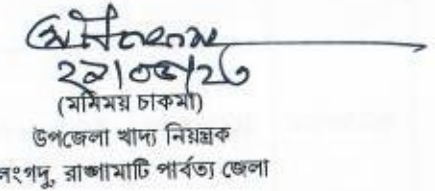 (মনিময় চাকমা)
উপজেলা খাদ্য নিয়ন্ত্রক
লংগদু, রাঙ্গামাটি পার্বত্য জেলা